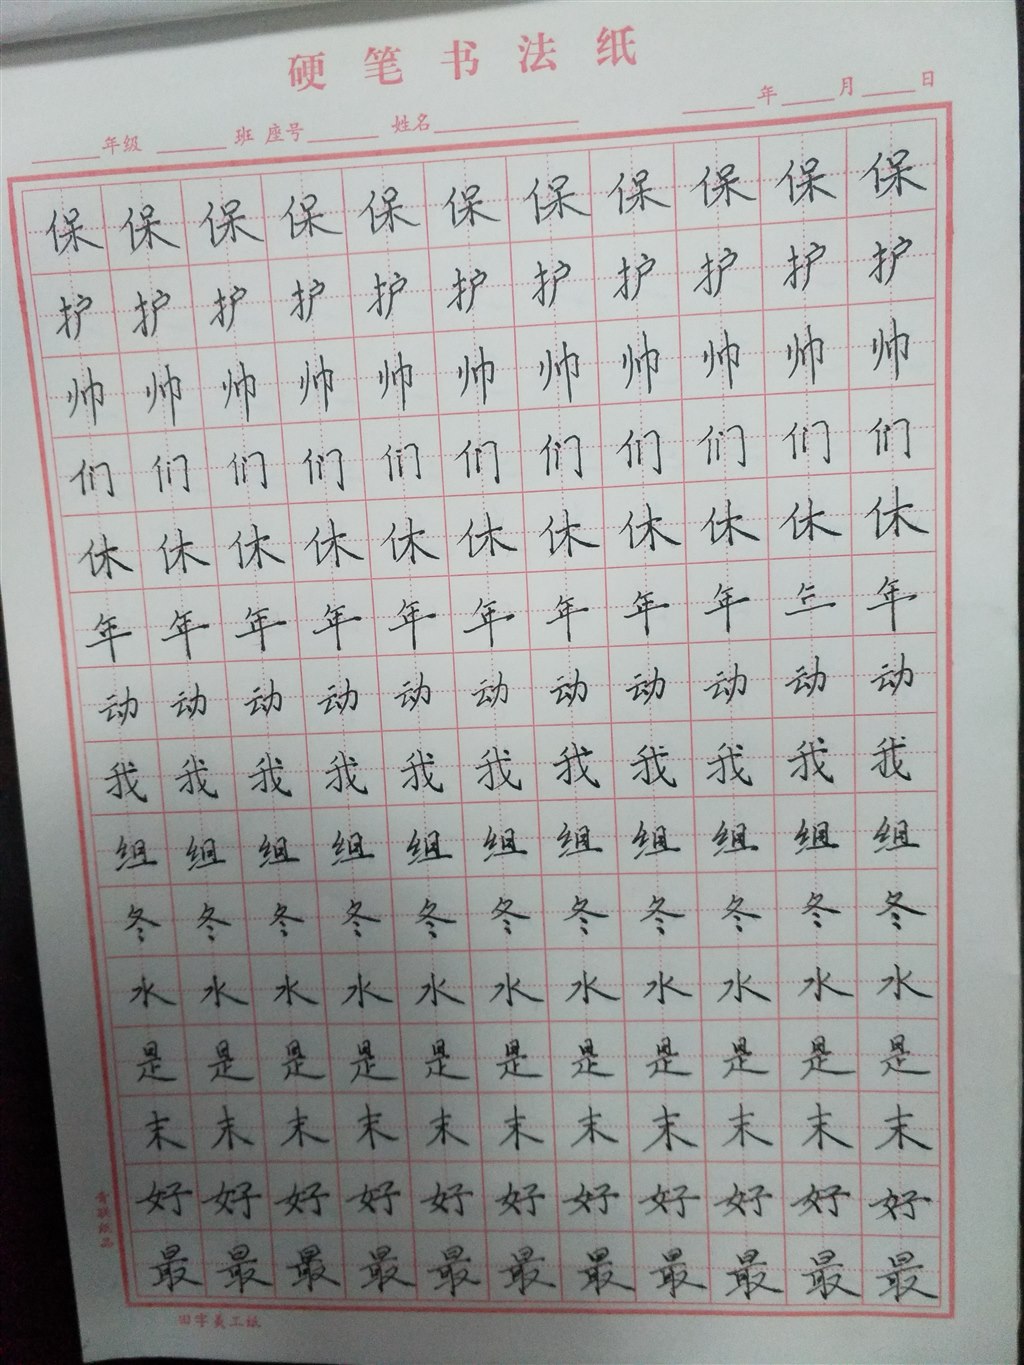 硬笔书法纸
年级 班 座号 姓名 年 月 日
保保保保保保保保保保保
护护护护护护护护护护护
帅帅帅帅帅帅帅帅帅帅帅
们们们们们们们们们们们
休休休休休休休休休休休
年年年年年年年年年年
动动动动动动动动动动动
我我我我我我我我我我我
组组组组组组组组组组组
冬冬冬冬冬冬冬冬冬冬冬
水水水水水水水水水水水
是是是是是是是是是是是
末末末末末末末末末末末
好好好好好好好好好好好
最最最最最最最最最最最
田字美工纸